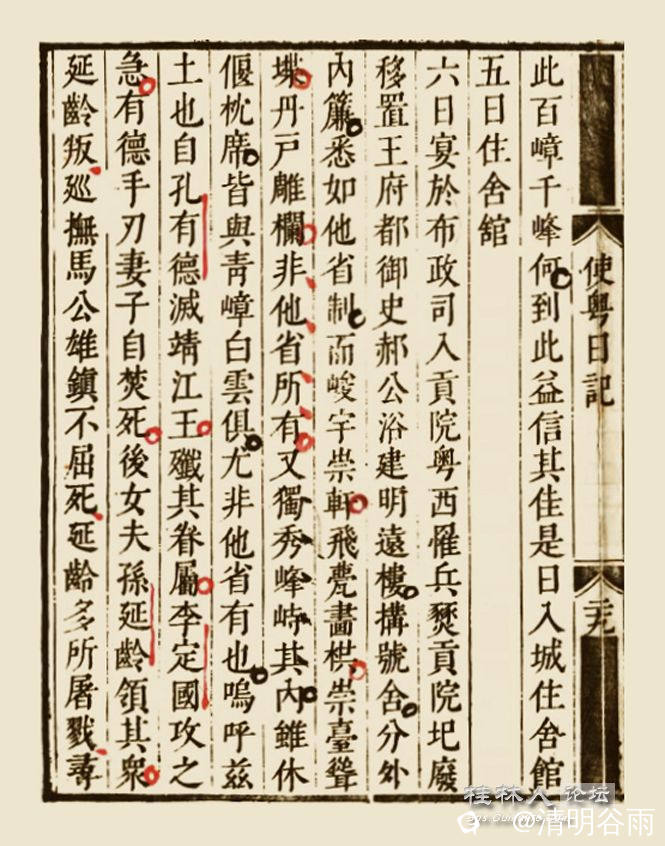 使粤日記
此百嶂千峰何到此益信其佳是日入城住舍館
五日住舍舘
六日宴於布政司入貢院粤西罹兵燹貢院圮廢
移置王府都御史郝公浴建明遠樓搆號舍分外
內簾悉如他省制而峻宇崇軒飛甍畵栱崇臺聳
堞丹戸雕欄非他省所有又獨秀峰峙其內雖休
偃枕席皆與靑嶂白雲俱尤非他省有也嗚呼茲
土也自孔有德滅靖江王殲其眷屬李定國攻之
急有德手刃妻子自焚死後女夫孫延齡領其衆
延齡叛廵撫馬公雄鎭不屈死延齡多所屠戮尋
桂林人论坛
@清明谷雨